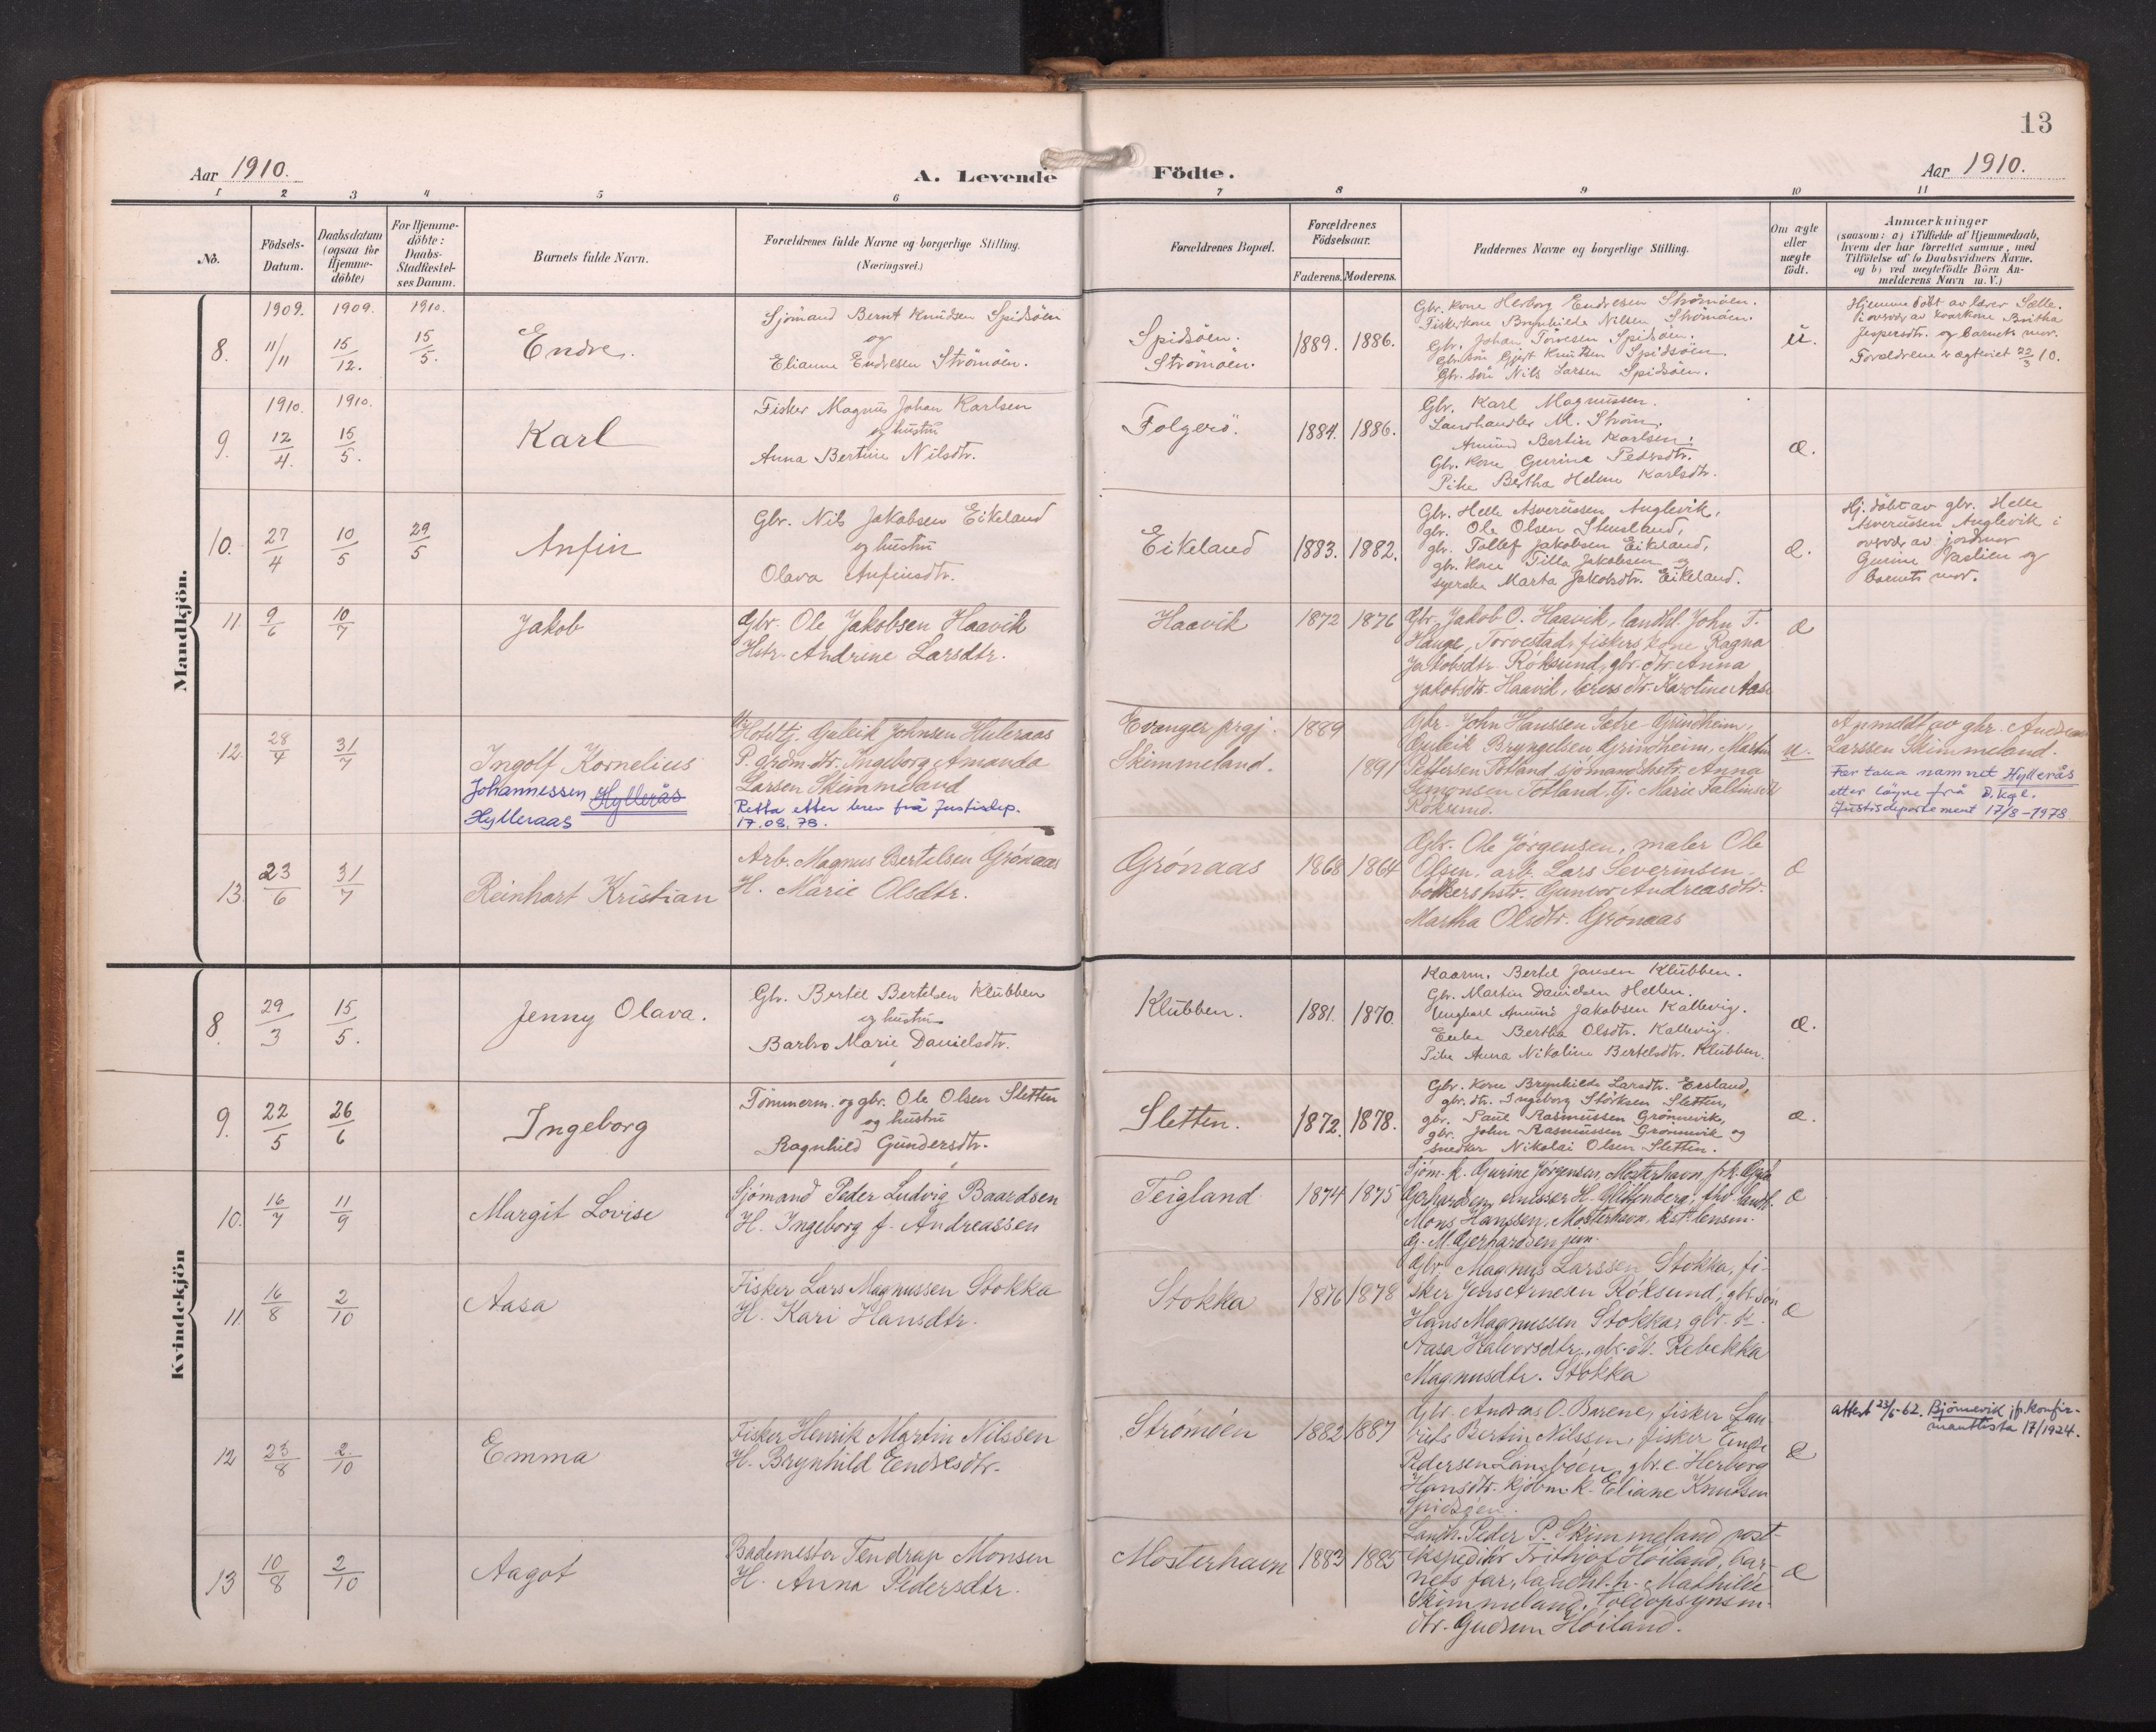 13
Aar 1910.
A. Levende Födte.
Aar 1910.
1 2 3 4 5 6 7 8 9 10 11
No.
Födsels-
Datum.
Daabsdatum
(ogsaa for
Hjemme-
döbte)
For Hjemme-
döbte:
Daabs-
Stadfæstel-
ses Datum.
Barnets fulde Navn.
Forældrenes fulde Navne og borgerlige Stilling.
(Næringsvei.)
Forældrenes Bopæl.
Forældrenes
Födselsaar.
Faderens. Moderens.
Faddernes Navne og borgerlige Stilling.
Om ægte
eller
uægte
födt.
Anmærkninger
(saasom: a) i Tilfælde af Hjemmedaab,
hvem der har forrettet samme, med
Tilföielse af to Daabsvidners Navne.
og b) ved uægtefödte Börn An-
melderens Navn m. V.)
Mandkjön.
8.
1909.
11/11
1909.
15/12.
1910.
15/5.
Endre.
Sjömand Bernt Knudsen Spidsöen
og
Elianne Endresen Strömöen.
Spidsöen.
Strömöen.
1889. 1886.
Gbr. kone Herborg Endresen Strömöen.
Fiskerkone Brynhilde Nilsen Strömöen.
Gbr. Johan Torvesen Spidsöen.
Gbr. sön Gjert Knudsen Spidsöen.
Gbr. sön Nils Larsen Spidsöen.
u.
Hjemmedöbt av lærer Sælle.
i overvær av kone Britha
Jespersdtr. og barnets mor.
Forældrene ægteviet 22/3 10.
9.
1910.
12/4.
1910.
15/5.
Karl
Fisker Magnus Johan Karlsen
og hustru
Anna Bertine Nilsdtr.
Folgerö.
1884. 1886.
Gbr. Karl Magnussen.
Landhandler M. Ström.
Amund Bertin Karlsen.
Gbr. kone Gurine Pedersdtr.
Pike Bertha Helene Karlsdtr.
æ.
10.
27/4
10/5
29/5
Anfin
Gbr. Nils Jakobsen Eikeland
og hustru
Olava Anfinsdtr.
Eikeland
1883. 1882.
Gbr. Helle Asverussen Auglevik,
gbr. Ole Olsen Stensland,
gbr. Tollef Jakobsen Eikeland,
gbr. kone Tilla Jakobsen og
syerske Marta Jakobsdtr. Eikeland.
æ.
Hj. döbt av gbr. Helle
Asverussen Auglevik i
overvær av jordmor
Gurine Vaslien og
barnets mor.
11.
9/6
10/7
Jakob
Gbr. Ole Jakobsen Haavik
Hstr. Andrine Larsdtr.
Haavik
1872 1876
Gbr. Jakob O. Haavik, landhl. John T.
Hauge, Torvestad, fiskers kone Ragna
Jakobsdtr. Röksund, gbr. dtr. Anna
Jakobsdtr. Haavik, Karoline Aase
æ
12.
28/4
31/7
Ingolf Kornelius
Johannessen Hyllerås
Hylleraas
Hoteltj. Gulleik Johnsen Huleraas
P. grdm. dtr. Ingeborg Amanda
Larsen Skimmeland
Retta etter brev frå Justisdep.
17.08.78.
Evanger prgj.
Skimmeland.
1889
1891
Gbr. John Hanssen Sætre-Grindheim,
Guleik Bryngelsen Grindheim, Martin
Pettersen Totland, sjömandshstr. Anna
Simonsen Totland, tj. Marie
Röksund.
u.
Anmeldt av gbr. Andreas
Larssen Skimmeland.
Får taka namnet Hyllerås
etter löyve frå D. kgl.
Justisdepartement 17/8-1978
13.
23/6
31/7
Reinhart Kristian
Arb. Magnus Bertelsen Grönaas
H. Marie Olsdtr.
Grönaas
1868 1864
Gbr. Ole Jörgensen, maler Ole
Olsen, arb. Lars Severinsen,
bödkers hstr. Gunvor Andreasdtr.
Martha Olsdtr. Grönaas
æ
Kvindekjön
8.
29/3
15/5.
Jenny Olava.
Gbr. Bertel Bertelsen Klubben
og hustru
Barbro Marie Danielsdtr.
Klubben.
1881. 1870.
Kaarm. Bertel Jansen Klubben.
Gbr. Martin Danielsen Hellen.
Ungkarl Amund Jakobsen Kallevig.
Enke Bertha Olsdtr. Kallevig.
Pike Anna Nikoline Bertelsdtr. Klubben.
æ.
9.
22/5
26/6
Ingeborg
Tömmerm. og gbr. Ole Olsen Sletten
og hustru
Ragnhild Gundersdtr.
Sletten.
1872. 1878.
Gbr. kone Brynhilde Larsdtr. Eidsland,
gbr. dtr. Ingeborg Störksen Sletten,
gbr. Paul Rasmussen Grönnevik,
gbr. John Rasmussen Grönnevik og
snedker Nikolai Olsen Sletten.
æ.
10.
16/7
11/9
Margit Lovise
Sjömand Peder Ludvig Baardsen
H. Ingeborg f. Andreassen
Teigland
1874 1875
Sjöm. k. Gurine Jörgensen, Mosterhavn, frk. Olga
Gerhardsen, emissær H. Gliffenberg, fhv. landh.
Mons Hanssen, Mosterhavn, kst. lensm.
G. M. Gerhardsen jun.
æ
11.
16/8
2/10
Aasa
Fisker Lars Magnussen Stokka
H. Kari Hansdtr.
Stokka
1876 1878
Gbr. Magnus Larssen Stokka, fi-
sker Jens Arnesen Röksund, gbr. sön
Hans Magnussen Stokka, gbr. k.
Aasa Halvorsdtr., gbr. dtr. Rebekka
Magnusdtr. Stokka
æ
12
23/8
2/10
Emma
Fisker Henrik Martin Nilssen
H. Brynhild Endresdtr.
Strömöen
1882 1887
Gbr. Andreas O. Barene, fisker Lau-
rits Bertin Nilssen, fisker Endre
Pedersen Langböen, gbr. e. Herborg
Hansdtr. kjöbm. k. Eliane Knudsen
Spidsöen.
æ
attest 23/5-62. Bjönnevik jfr. konfir-
mantlista 17/1924.
13
10/8
2/10
Aagot
Bademester Tendrup Monsen
H. Anna Pedersdtr.
Mosterhavn
1883 1885
Landh. Peder P. Skimmeland, post-
ekspeditör Frithjof Höiland, bar-
nets far, landhl. h. Mathilde
Skimmeland, toldopsynsm.
dtr. Gudrun Höiland.
æ